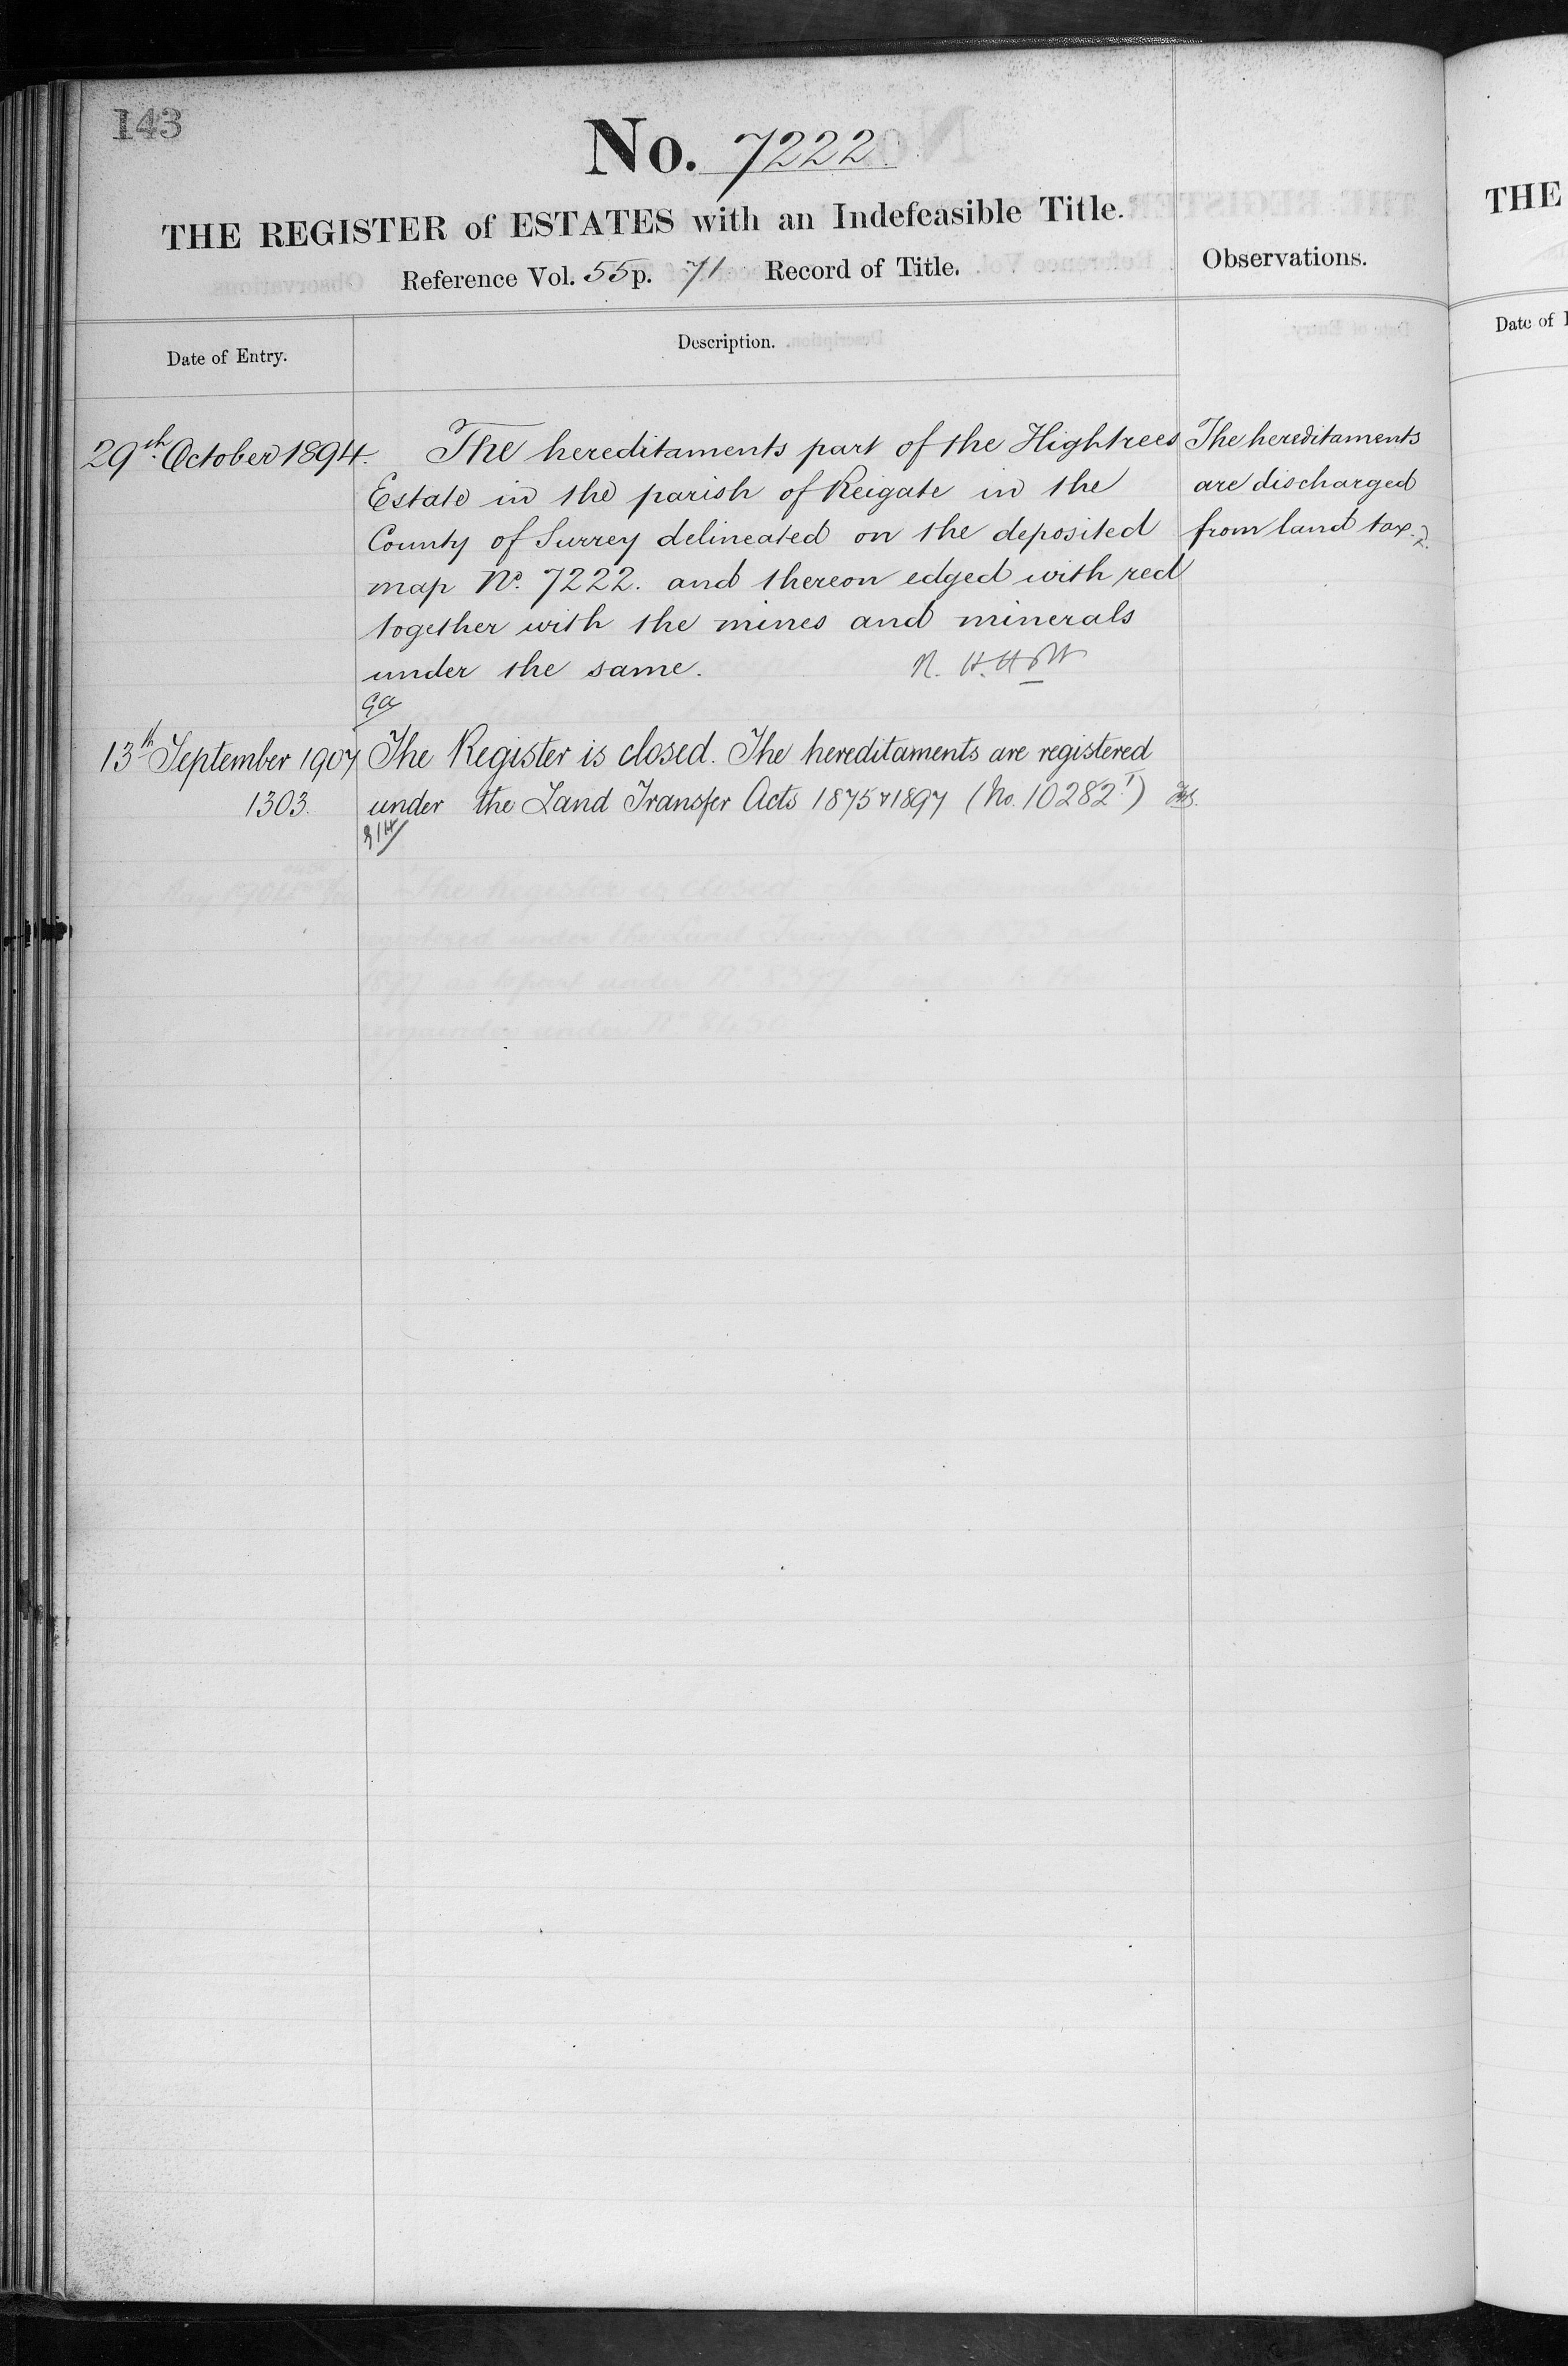 143
No. 7222
THE REGISTER of ESTATES with an Indefeasible Title.
Reference Vol. 55 p. 71 Record of Title.
Observations.
Date of Entry.
Description.
29th October 1894.
The hereditaments part of the Hightrees
Estate in the parish of Reigate in the
County of Surrey delineated on the deposited
map No. 7222. and thereon edged with red
together with the mines and minerals
under the same.
The hereditaments
are discharged
from land tax.
13th September 1907
1303.
The Register is closed. The hereditaments are registered
under the Land Transfer Acts 1875 & 1897 (No. 10282)
THE
Date of